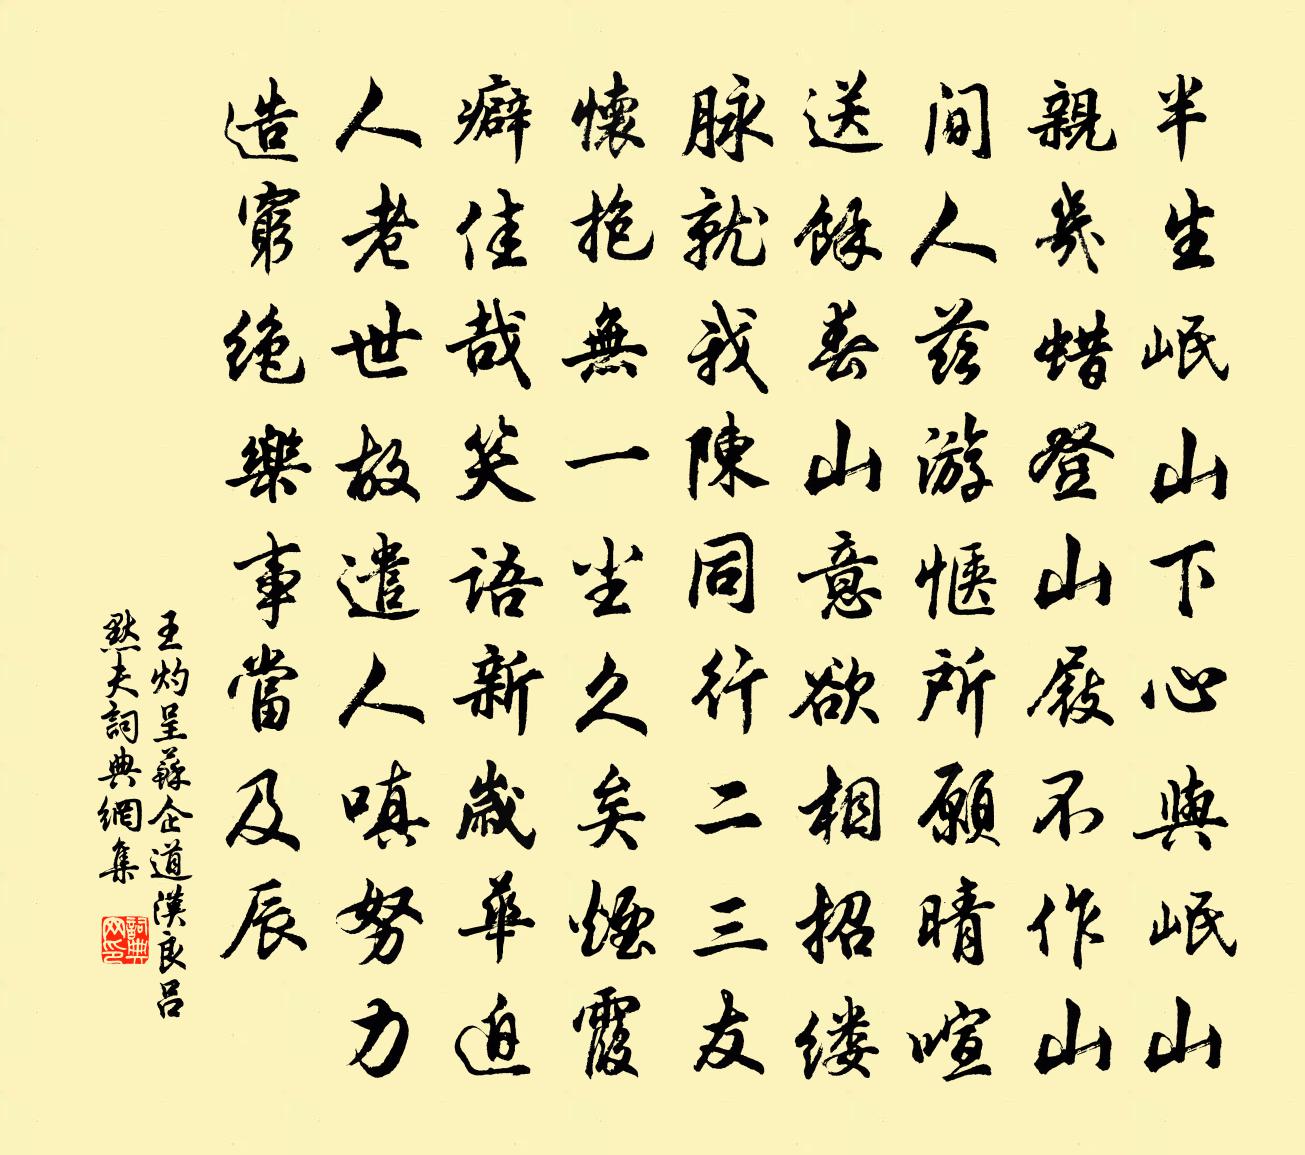 半生岷山下心與岷山
親幾蜡登山屐不作山
間人茲游愜所願晴喧
送餘春山意欲相招縷
脉就我陳同行二三友
懷抱無一尘久矣煙霞
癖佳哉笑語新歲華迫
人老世故遣人嗔努力
造窮絶樂事當及辰
王灼呈蘇企道漢良吕
默夫詞典網集
詞典网印